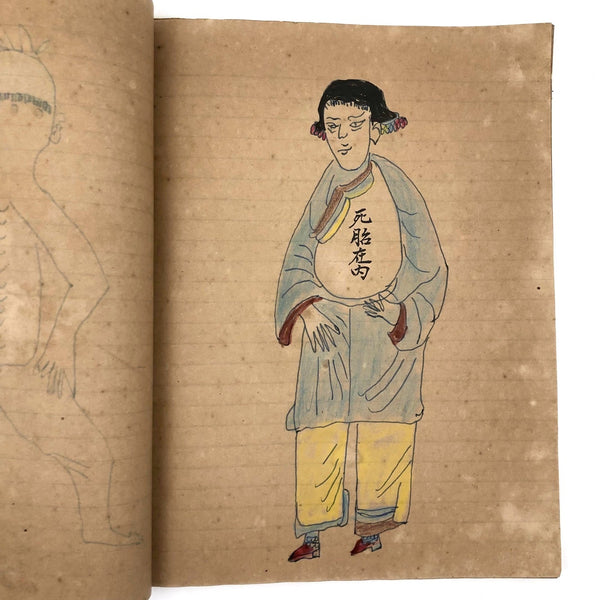 死胎在内